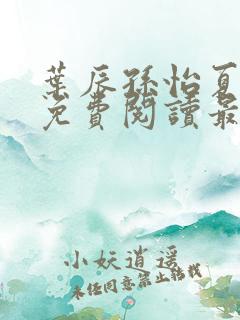 葉辰孫怡夏
免費閱讀最
小妖逍遥
未经同意禁止转载